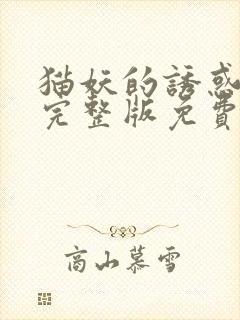 猫妖的誘惑
完整版免費
高山慕雪